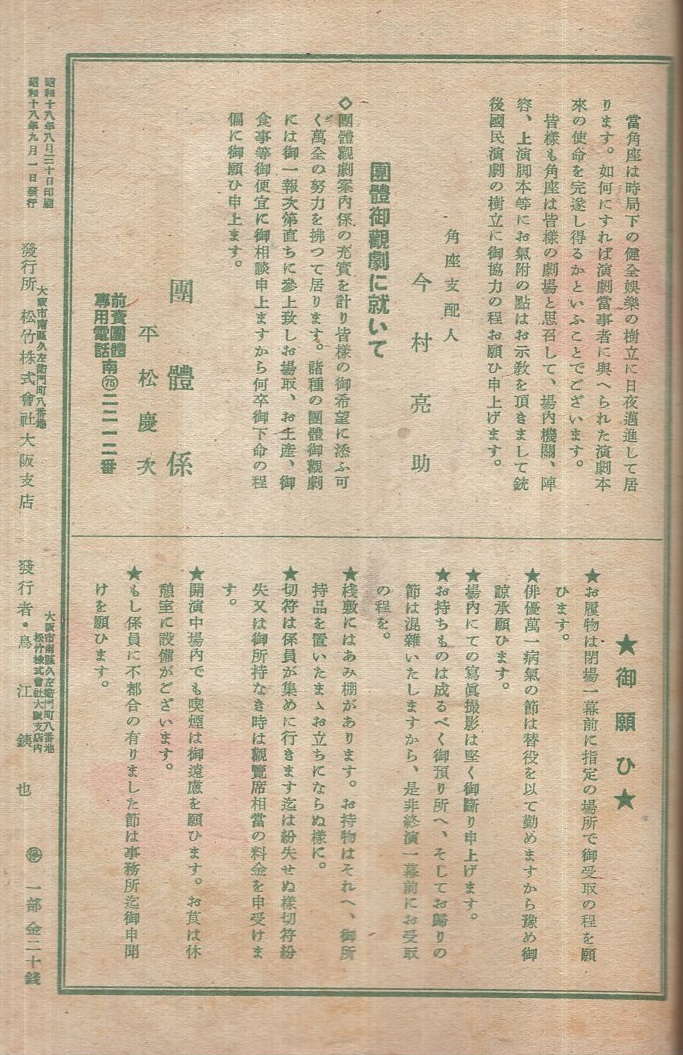 當角座は時局下の健全娛樂の樹立に日夜邁進して居
ります。如何にすれば演劇當事者に與へられた演劇本
來の使命を完遂し得るかといふことでございます。
皆樣も角座は皆樣の劇場と思召して、場内機關、陣
容、上演脚本等にお氣附の點はお示敎を頂きまして銃
後國民演劇の樹立に御協力の程お願ひ申上げます。
角座支配人
今村亮助
團體御觀劇に就いて
◇團體觀劇案内係の充實を計り皆樣の御希望に添ふ可
く萬全の努力を拂つて居ります。諸種の團體御觀劇
には御一報次第直ちに參上致しお場取、お土産、御
食事等御便宜に御相談申上ますから何卒御下命の程
偏に御願ひ申上ます。
團體係
平松慶次
前賣團體
專用電話 南(75)二二一二番
★御願ひ★
★お履物は閉場一幕前に指定の場所で御受取の程を願
ひます。
★俳優萬一病氣の節は替役を以て勤めますから豫め御
諒承願ひます。
★場内にての寫眞撮影は堅く御斷り申上げます。
★お持ちものは成るべく御預り所へ、そしてお歸りの
節は混雜いたしますから、是非終演一幕前にお受取
の程を。
★棧敷にはあみ棚があります。お持物はそれへ、御所
持品を置いたまゝお立ちにならぬ樣に。
★切符は係員が集めに行きます迄は紛失せぬ樣切符紛
失又は御所持なき時は觀覽席相當の料金を申受けま
す。
★開演中場内でも喫煙は御遠慮を願ひます。お莨は休
憩室に設備がございます。
★もし係員に不都合の有りました節は事務所迄御申聞
けを願ひます。
昭和十八年八月三十日印刷
昭和十八年九月一日發行
大阪市南區久左衞門町八番地
發行所 松竹株式會社大阪支店
大阪市南區久左衞門町八番地
松竹株式會社大阪支店内
發行者・鳥江銕也
㊡ 一部 金二十錢